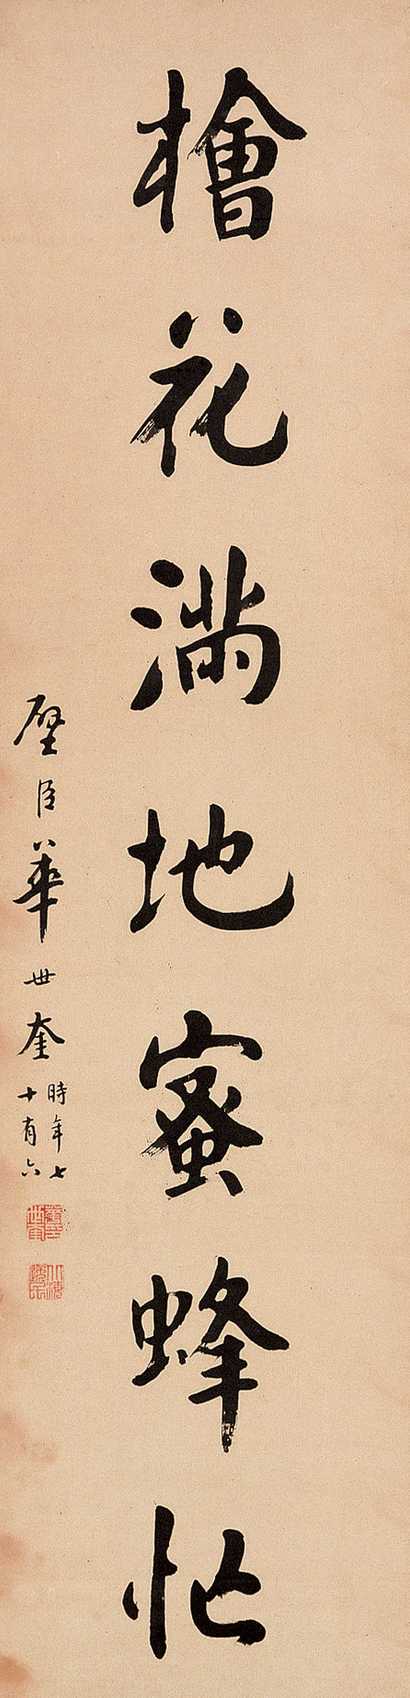 檜花滿地蜜蜂忙
璧臣華世奎
時年七
十有六